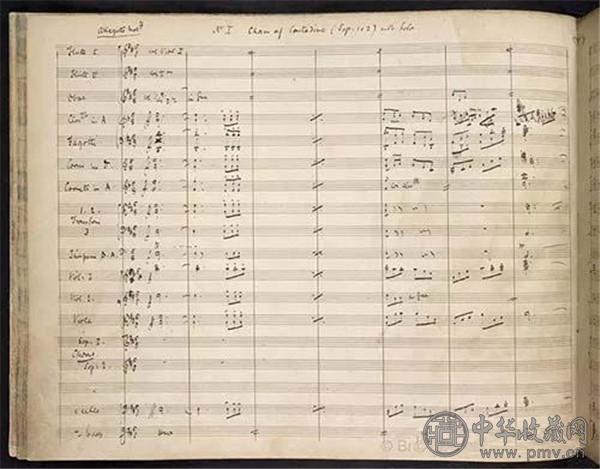 Allegretto Modto No. I Chorus of Contadine (Sop: 1 & 2) with Solo
Flute I.
Flute II.
Oboe
Clartti in A
Fagotti
Corni in D
Cornetti in A
1. 2.
Tromboni
3
Timpani D. A.
Vol: I
Vol 2.
Viola
Sop. 1.
Chorus
Sop. 2.
cello
Bass
© Bri
中华收藏网
www.pmv.cn